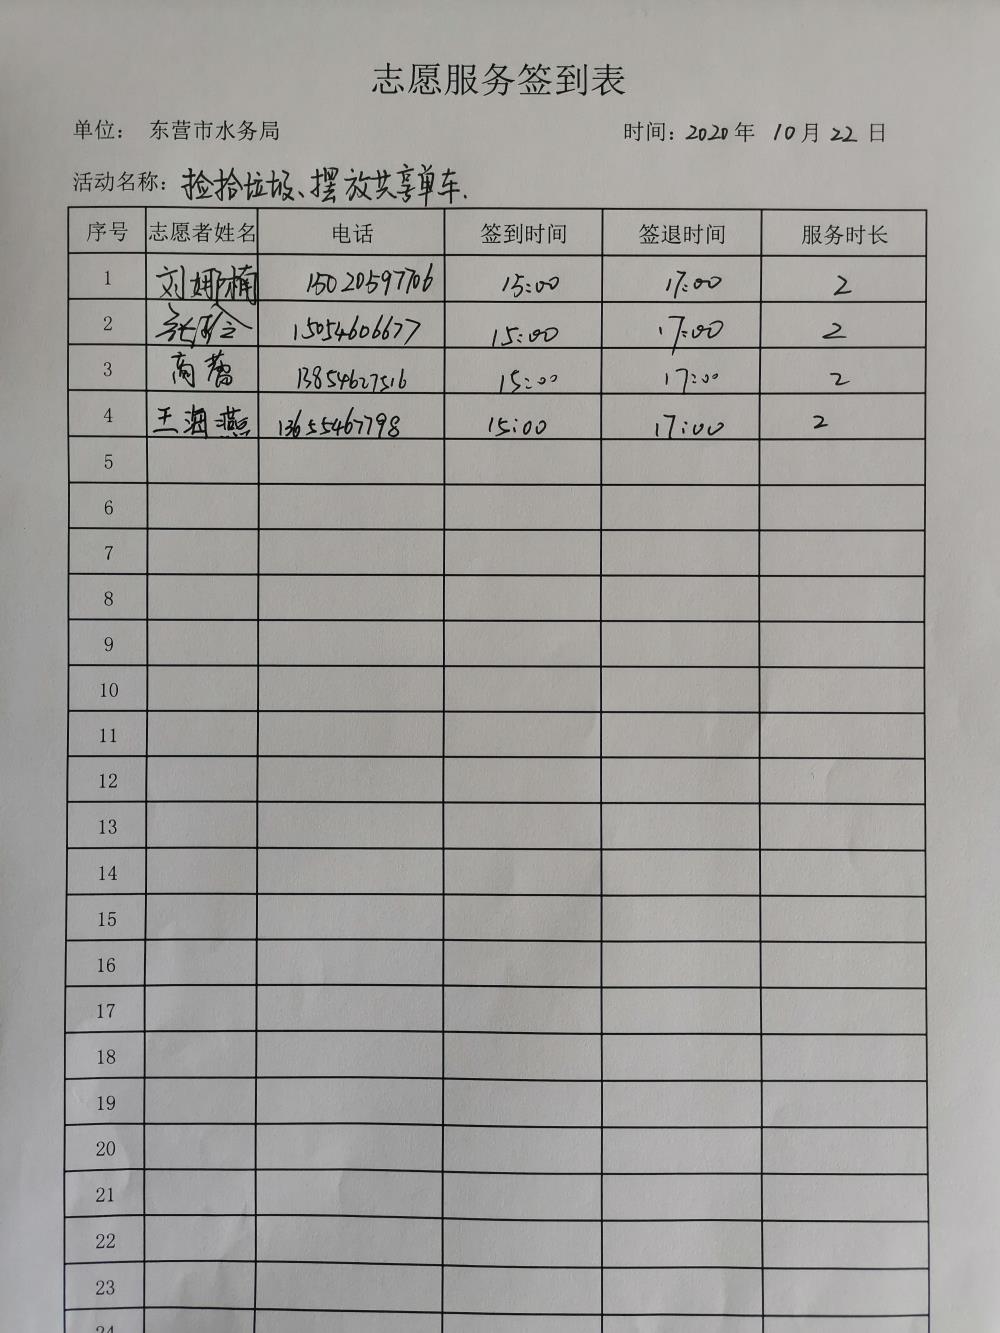 志愿服务签到表
单位： 东营市水务局 时间：2020 年 10 月 22 日
活动名称：捡拾垃圾、摆放共享单车.
序号 志愿者姓名 电话 签到时间 签退时间 服务时长
1 刘娜楠 15020597706 15:00 17:00 2
2 张 15054606677 15:00 17:00 2
3 高蕾 13854627516 15:00 17:00 2
4 王海燕 13655467798 15:00 17:00 2
5
6
7
8
9
10
11
12
13
14
15
16
17
18
19
20
21
22
23
24